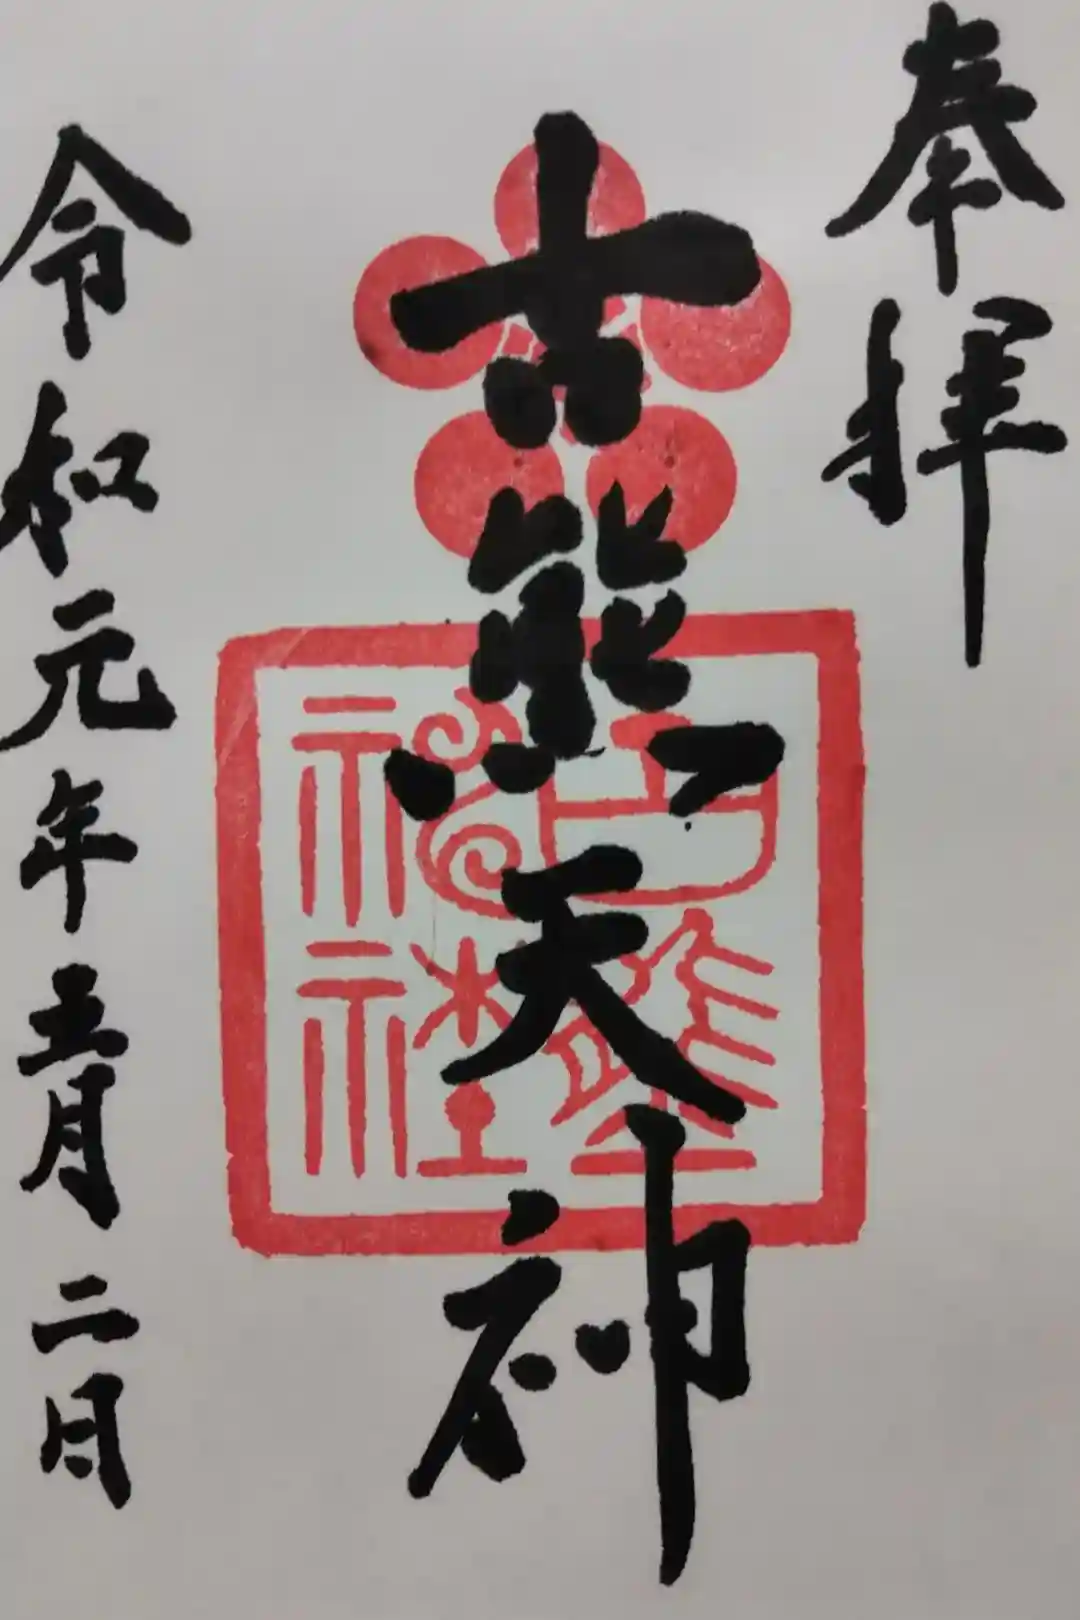 奉拝
古熊天神
古熊神社
令和元年五月二日